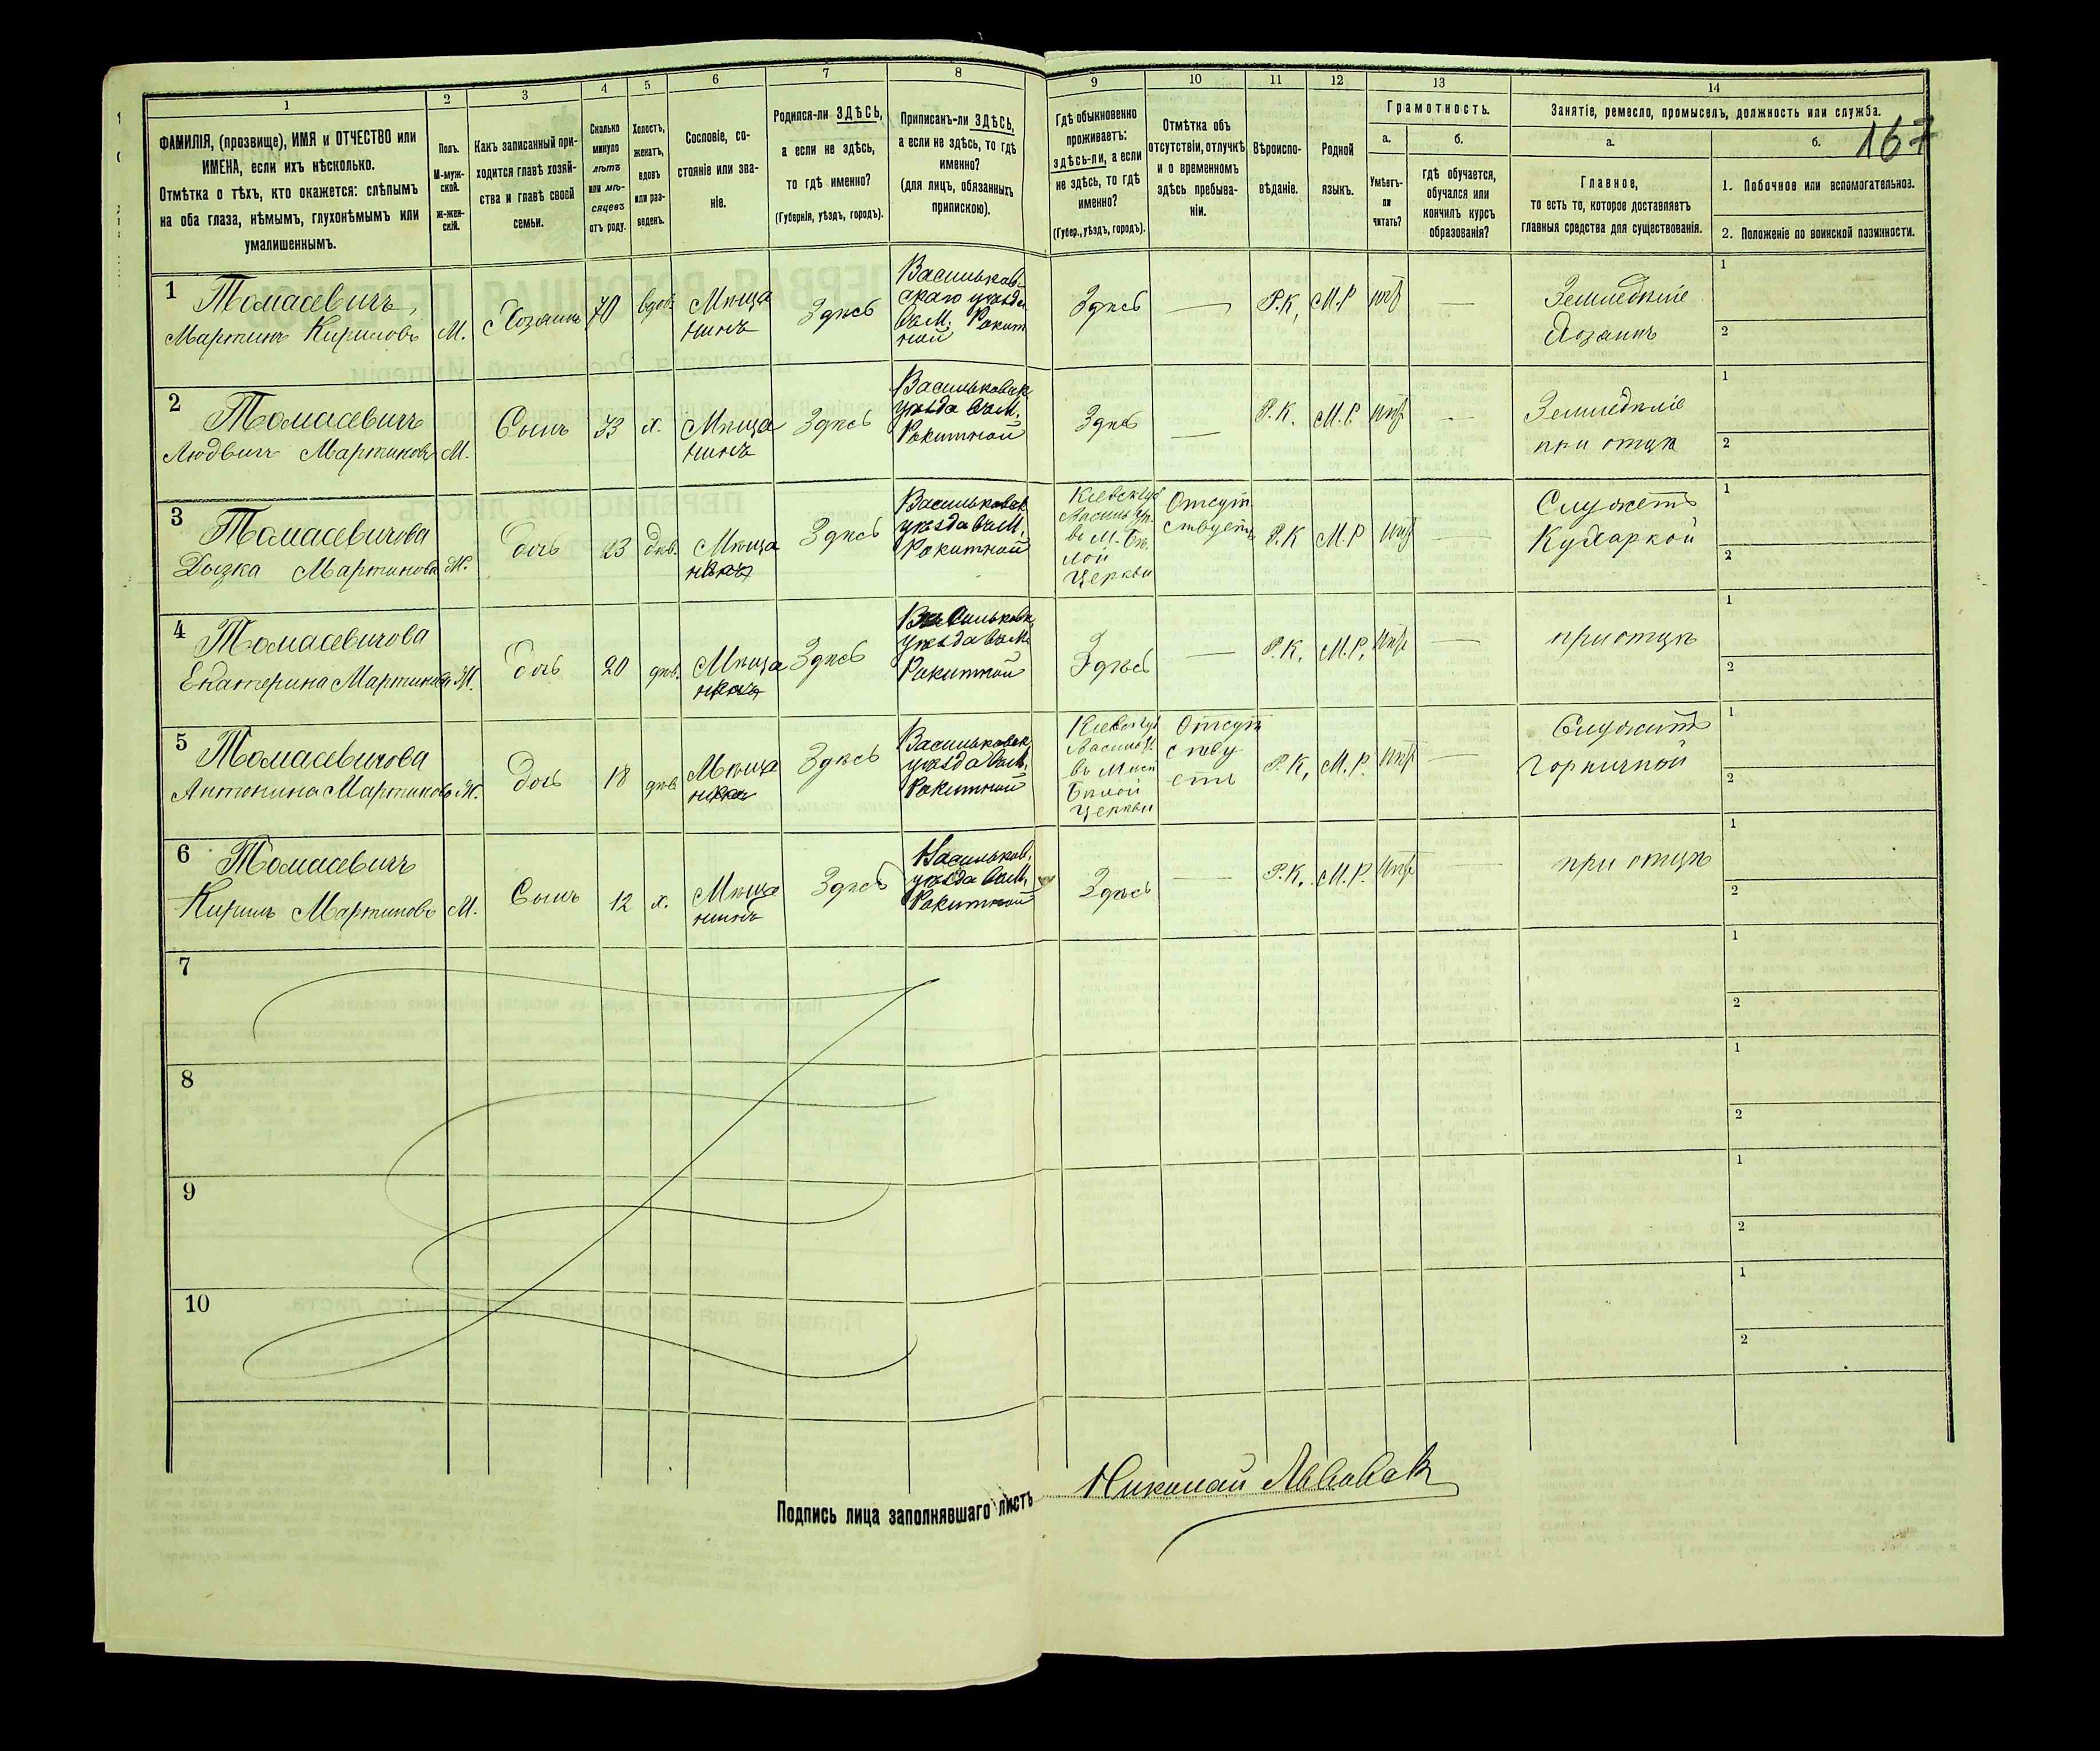 167
1
2
3
4
5
6
7
8
9
10
11
12
13
14
ФАМИЛІЯ, (прозвище), ИМЯ и ОТЧЕСТВО или
ИМЕНА, если ихъ нѣсколько.
Отмѣтка о тѣхъ, кто окажется: слѣпымъ
на оба глаза, нѣмымъ, глухонѣмымъ или
умалишеннымъ.
Полъ.
М-муж-
ской.
Ж-жен-
скій.
Какъ записанный при-
ходится главѣ хозяй-
ства и главѣ своей
семьи.
Сколько
минуло
лѣтъ
или мѣ-
сяцевъ
отъ роду.
Холостъ,
женатъ,
вдовъ
или раз-
веденъ.
Сословіе, со-
стояніе или зва-
ніе.
Родился-ли ЗДѢСЬ,
а если не здѣсь,
то гдѣ именно?
(Губернія, уѣздъ, городъ).
Приписанъ-ли ЗДѢСЬ,
а если не здѣсь, то гдѣ
именно?
(для лицъ, обязанныхъ
припискою).
Гдѣ обыкновенно
проживаетъ:
здѣсь-ли, а если
не здѣсь, то гдѣ
именно?
(Губер., уѣздъ, городъ).
Отмѣтка объ
отсутствіи, отлучкѣ
и о временномъ
здѣсь пребыва-
ніи.
Вѣроиспо-
вѣданіе.
Родной
языкъ.
Грамотность.
а.
Умѣетъ-
ли
читать?
б.
гдѣ обучается,
обучался или
кончилъ курсъ
образованія?
Занятіе, ремесло, промыселъ, должность или служба.
а.
Главное,
то есть то, которое доставляетъ
главныя средства для существованія.
б.
1. Побочное или вспомогательное.
2. Положеніе по воинской повинности.
1
Томасевичъ,
Мартинъ Кириловъ
М.
Хозяинъ
70
вдов.
Мѣща
нинъ
Здѣсь
Васильков-
скаго уѣзда
въ М. Ракит
ной
Здѣсь
—
Р.К,
М.Р
нѣт
—
Земледѣліе
Хозяинъ
1
2
2
Томасевичъ
Людвигъ Мартиновъ
М.
Сынъ
33
х.
Мѣща
нинъ
Здѣсь
Васильковск
уѣзда въ М.
Ракитной
Здѣсь
—
Р.К.
М.Р.
нѣт
—
Земледѣліе
при отцѣ
1
2
3
Томасевичова
Мартинова
Ж.
дочь
23
дѣв.
Мѣща
Здѣсь
Васильковск
уѣзда въ М.
Ракитной
Кіевск губ
Васильк у.
въ М. Бѣ-
лой
Церкви
Отсут
ствуетъ
Р.К
М.Р
нѣт
—
Служетъ
Кухаркой
1
2
4
Томасевичова
Екатерина Мартинова
Ж.
дочь
20
дѣв.
Мѣща
Здѣсь
Васильковск
уѣзда въ М.
Ракитной
Здѣсь
—
Р.К.
М.Р.
нѣт
—
при отцѣ
1
2
5
Томасевичова
Антонина Мартинова
Ж.
дочь
18
дѣв
Мѣща
Здѣсь
Васильковск
уѣзда въ М.
Ракитной
Кіевск губ
Васильк у.
въ Мѣст
Бѣлой
Церкви
Отсут
ству
етъ
Р.К,
М.Р.
нѣт
—
Служитъ
Горничной
1
2
6
Томасевичъ
Кирилъ Мартиновъ
М.
Сынъ
12
х.
Мѣща
нинъ
Здѣсь
Васильков.
уѣзда въ М.
Ракитной
Здѣсь
—
Р.К.
М.Р.
нѣт
—
при отцѣ
1
2
7
1
2
8
1
2
9
1
2
10
1
2
Подпись лица заполнявшаго листъ
Николай